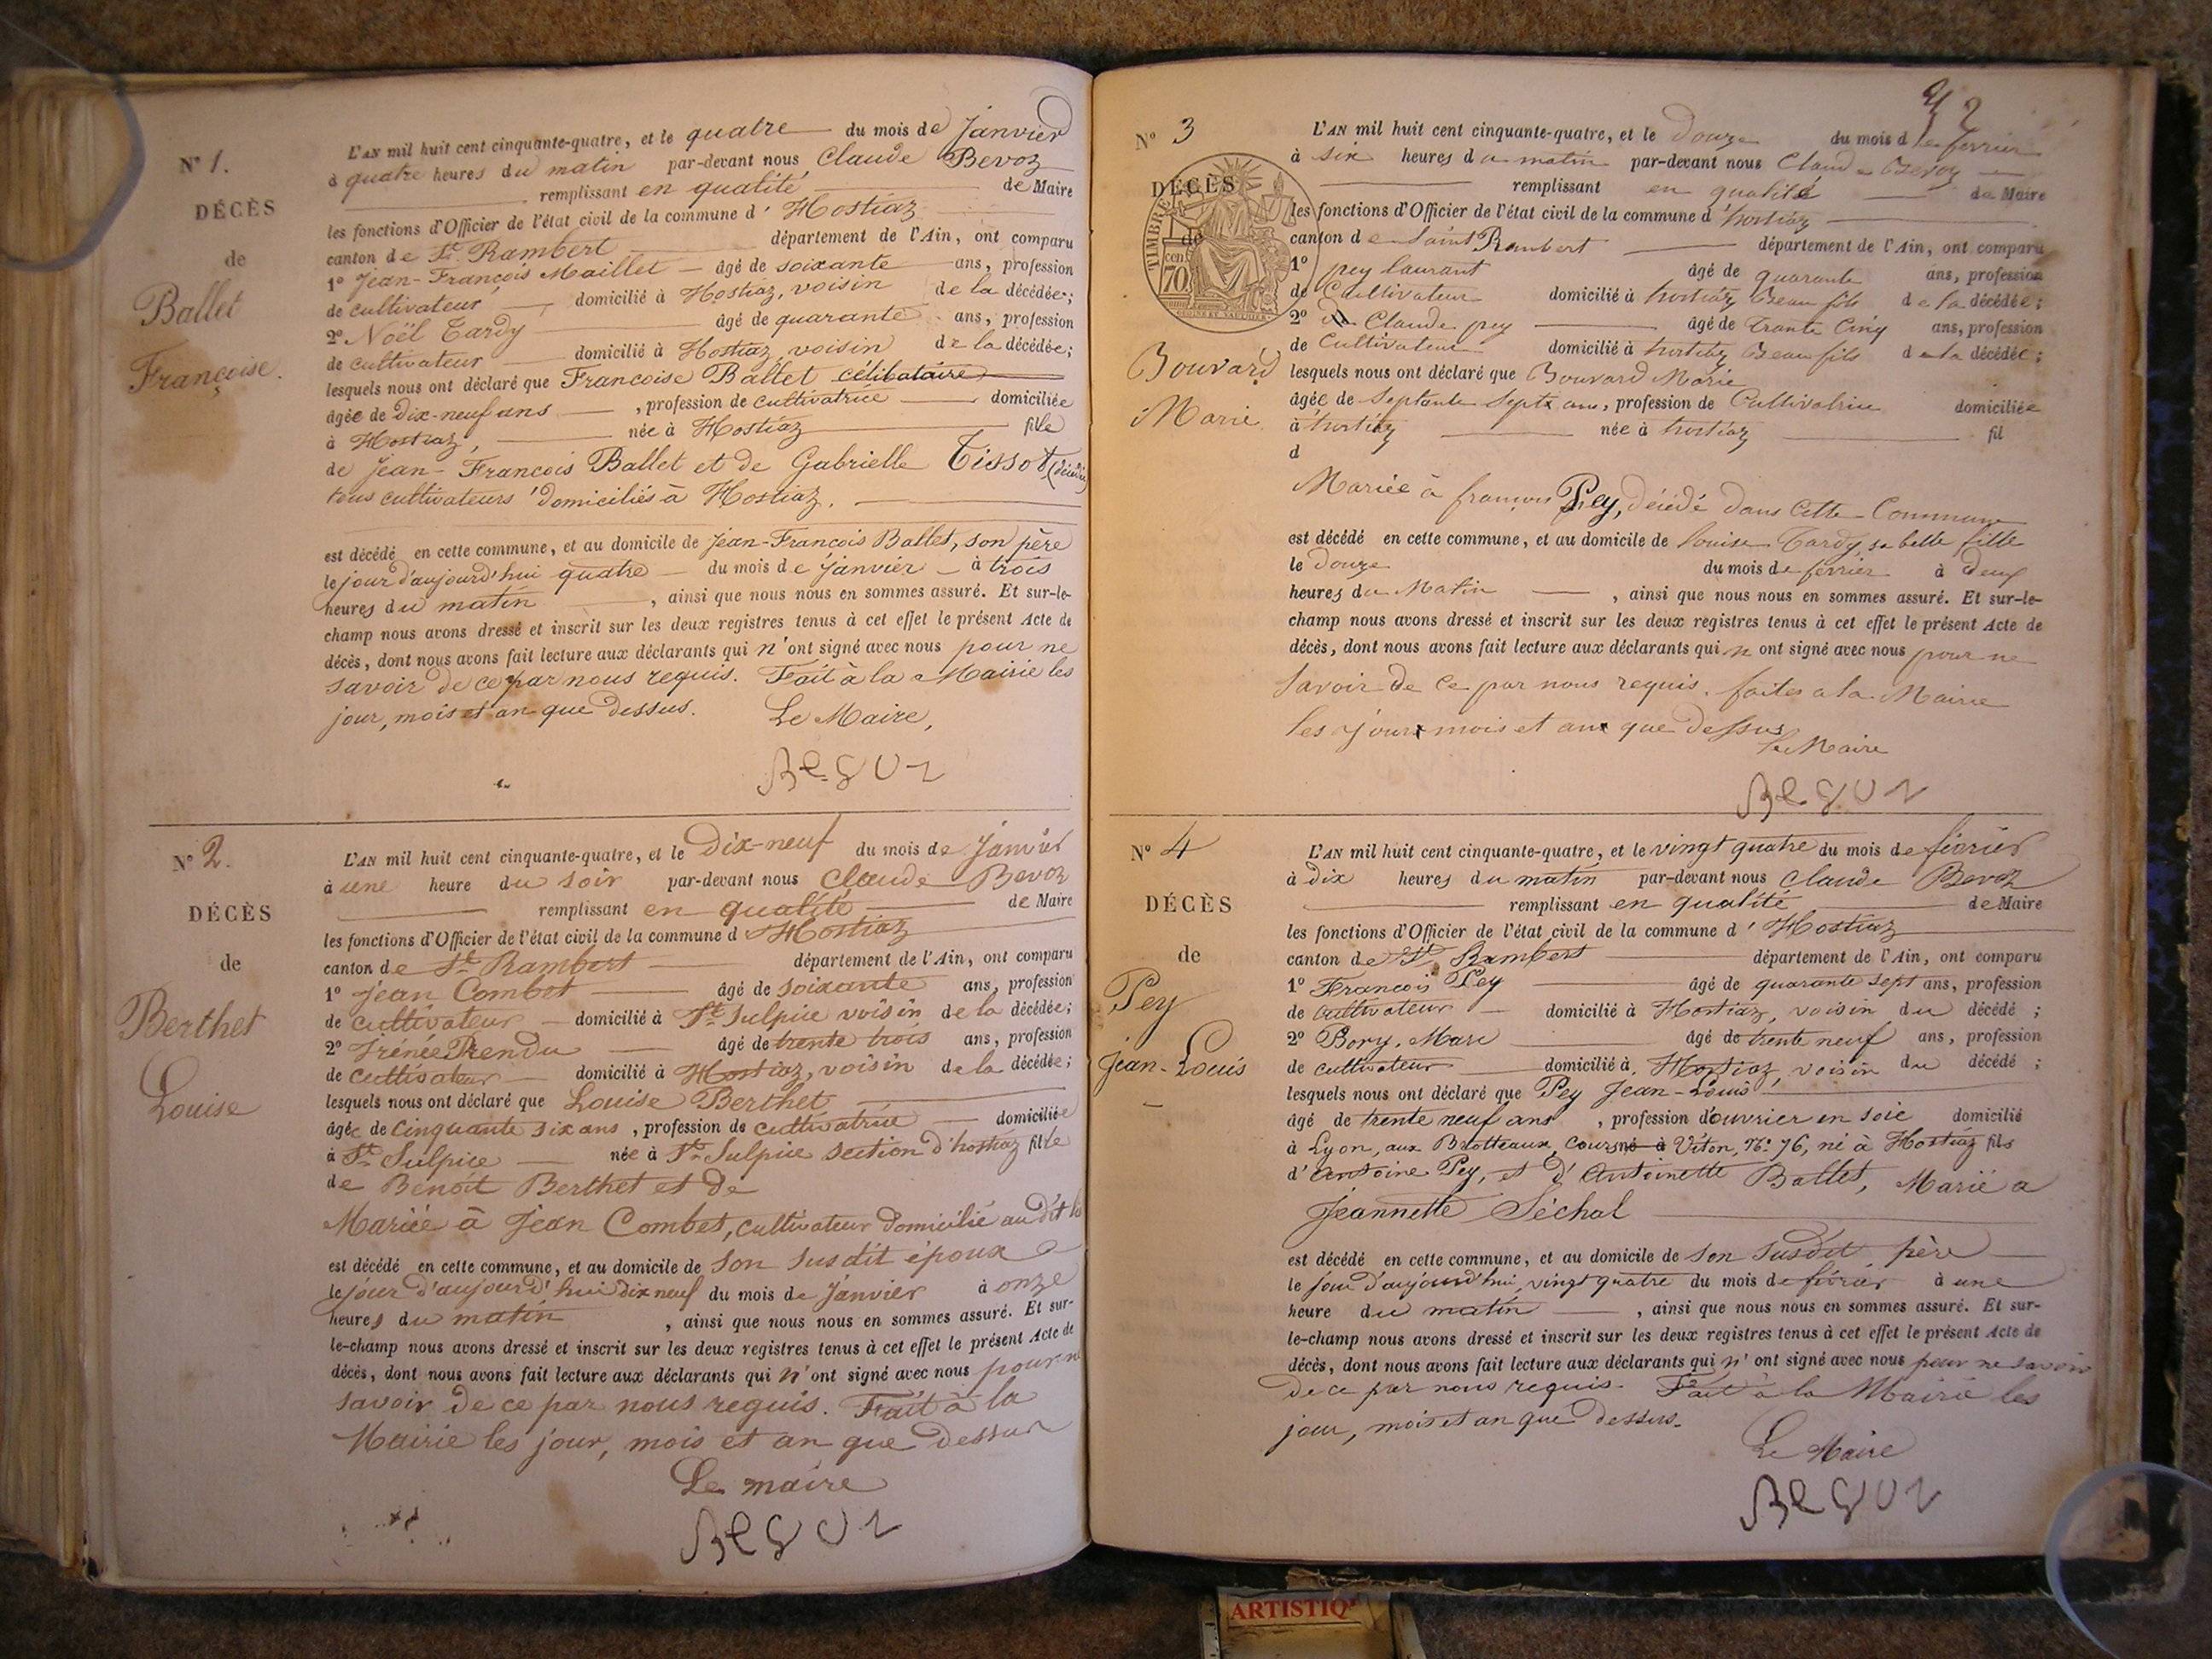 N° 1.
DÉCÈS
de
Ballet
Françoise.
L'AN mil huit cent cinquante-quatre, et le quatre du mois de Janvier
à quatre heures du matin par-devant nous Claude Bevoz
remplissant en qualité de Maire
les fonctions d'Officier de l'état civil de la commune d'Hostiaz
canton de St. Rambert département de l'Ain, ont comparu
1° Jean-François Maillet âgé de soixante ans, profession
de cultivateur, domicilié à Hostiaz, voisin de la décédée;
2° Noël Tardy âgé de quarante ans, profession
de cultivateur domicilié à Hostiaz, voisin de la décédée;
lesquels nous ont déclaré que Francoise Ballet célibataire
âgée de Dix-neuf ans, profession de cultivatrice domiciliée
à Hostiaz, née à Hostiaz fille
de Jean-François Ballet et de Gabrielle Tissot
tous cultivateurs domiciliés à Hostiaz.
est décédé en cette commune, et au domicile de Jean-François Ballet, son père
le jour d'aujourd'hui quatre du mois de Janvier à trois
heures du matin, ainsi que nous nous en sommes assuré. Et sur-le-
champ nous avons dressé et inscrit sur les deux registres tenus à cet effet le présent Acte de
décès, dont nous avons fait lecture aux déclarants qui n'ont signé avec nous pour ne
savoir de ce par nous requis. Fait à la Mairie les
jour, mois et an que dessus. Le Maire,
Bevoz
N° 2.
DÉCÈS
de
Berthet
Louise
L'AN mil huit cent cinquante-quatre, et le Dix-neuf du mois de Janvier
à une heure du soir par-devant nous Claude Bevoz
remplissant en qualité de Maire
les fonctions d'Officier de l'état civil de la commune d'Hostiaz
canton de St. Rambert département de l'Ain, ont comparu
1° Jean Combet âgé de soixante ans, profession
de cultivateur domicilié à St. Sulpice voisin de la décédée;
2° Irénée Rendu âgé de trente trois ans, profession
de cultivateur domicilié à Hostiaz, voisin de la décédée;
lesquels nous ont déclaré que Louise Berthet
âgée de cinquante six ans, profession de cultivatrice domiciliée
à St. Sulpice née à St. Sulpice section d'hostiaz fille
de Benoit Berthet et de
Mariée à Jean Combet, cultivateur domicilié au dit lieu
est décédé en cette commune, et au domicile de son susdit époux
le jour d'aujourd'hui dix neuf du mois de Janvier à onze
heures du matin, ainsi que nous nous en sommes assuré. Et sur-
le-champ nous avons dressé et inscrit sur les deux registres tenus à cet effet le présent Acte de
décès, dont nous avons fait lecture aux déclarants qui n'ont signé avec nous pour ne
savoir de ce par nous requis. Fait à la
Mairie les jour, mois et an que dessus
Le maire
Bevoz
42
N° 3
DÉCÈS
de
TIMBRE
70 cen.
Bouvard
Marie
L'AN mil huit cent cinquante-quatre, et le Douze du mois de fevrier
à six heures du matin par-devant nous Claude Bevoz
remplissant en qualité de Maire
les fonctions d'Officier de l'état civil de la commune d'hostiaz
canton de Saint Rambert département de l'Ain, ont comparu
1° pey laurant âgé de quarante ans, profession
de Cultivateur domicilié à hostiaz Beau fils de la décédée;
2° Claude pey âgé de trante Cinq ans, profession
de Cultivateur domicilié à hostiaz Beau fils de la décédée;
lesquels nous ont déclaré que Bouvard Marie
âgée de Septante Sept ans, profession de Cultivatrice domiciliée
à hostiaz née à hostiaz fil
d
Mariée à françois Pey, décédé dans Cette Commune
est décédé en cette commune, et au domicile de louise Tardy, sa belle fille
le Douze du mois de fevrier à Deux
heures du Matin, ainsi que nous nous en sommes assuré. Et sur-le-
champ nous avons dressé et inscrit sur les deux registres tenus à cet effet le présent Acte de
décès, dont nous avons fait lecture aux déclarants qui n ont signé avec nous pour ne
savoir de ce par nous requis. faites a la Mairie
les jour mois et an que dessus
le Maire
Bevoz
N° 4
DÉCÈS
de
Pey
Jean-Louis
L'AN mil huit cent cinquante-quatre, et le vingt quatre du mois de février
à dix heures du matin par-devant nous Claude Bevoz
remplissant en qualité de Maire
les fonctions d'Officier de l'état civil de la commune d'Hostiaz
canton de St. Rambert département de l'Ain, ont comparu
1° François Pey âgé de quarante sept ans, profession
de cultivateur domicilié à Hostiaz, voisin du décédé;
2° Bory, Marc âgé de trente neuf ans, profession
de cultivateur domicilié à Hostiaz, voisin du décédé;
lesquels nous ont déclaré que Pey Jean-Louis
âgé de trente neuf ans, profession d'ouvrier en soie domicilié
à Lyon, aux Brotteaux, cours né à Viton, N° 76, né à Hostiaz fils
d'Antoine Pey, et d'Antoinette Ballet, Marié a
Jeannette Séchal
est décédé en cette commune, et au domicile de son susdit père
le jour d'aujourd'hui, vingt quatre du mois de février à une
heure du matin, ainsi que nous nous en sommes assuré. Et sur-
le-champ nous avons dressé et inscrit sur les deux registres tenus à cet effet le présent Acte de
décès, dont nous avons fait lecture aux déclarants qui n'ont signé avec nous pour ne savoir
de ce par nous requis. Fait à la Mairie les
jour, mois et an que dessus.
Le Maire
Bevoz
ARTISTIQ